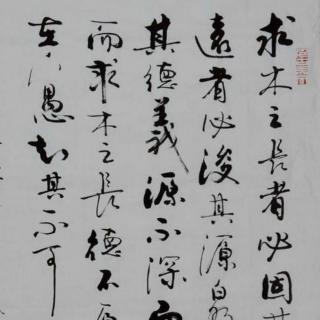 求木之長者必固其
遠者必浚其源
其德義源不深而
而求木之長德不厚
在下愚知其不可